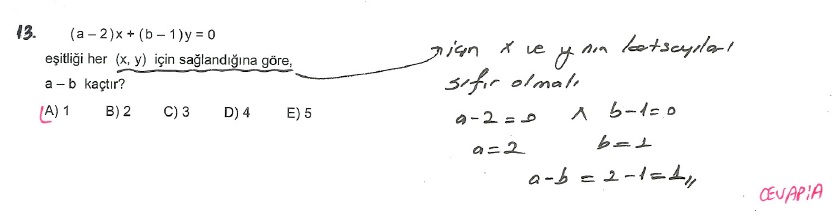 13. (a – 2)x + (b – 1)y = 0
eşitliği her (x, y) için sağlandığına göre,
a – b kaçtır?
A) 1 B) 2 C) 3 D) 4 E) 5
için x ve y nin katsayıları
sıfır olmalı
a-2=0 ∧ b-1=0
a=2 b=1
a-b = 2-1=1,,
CEVAP:A